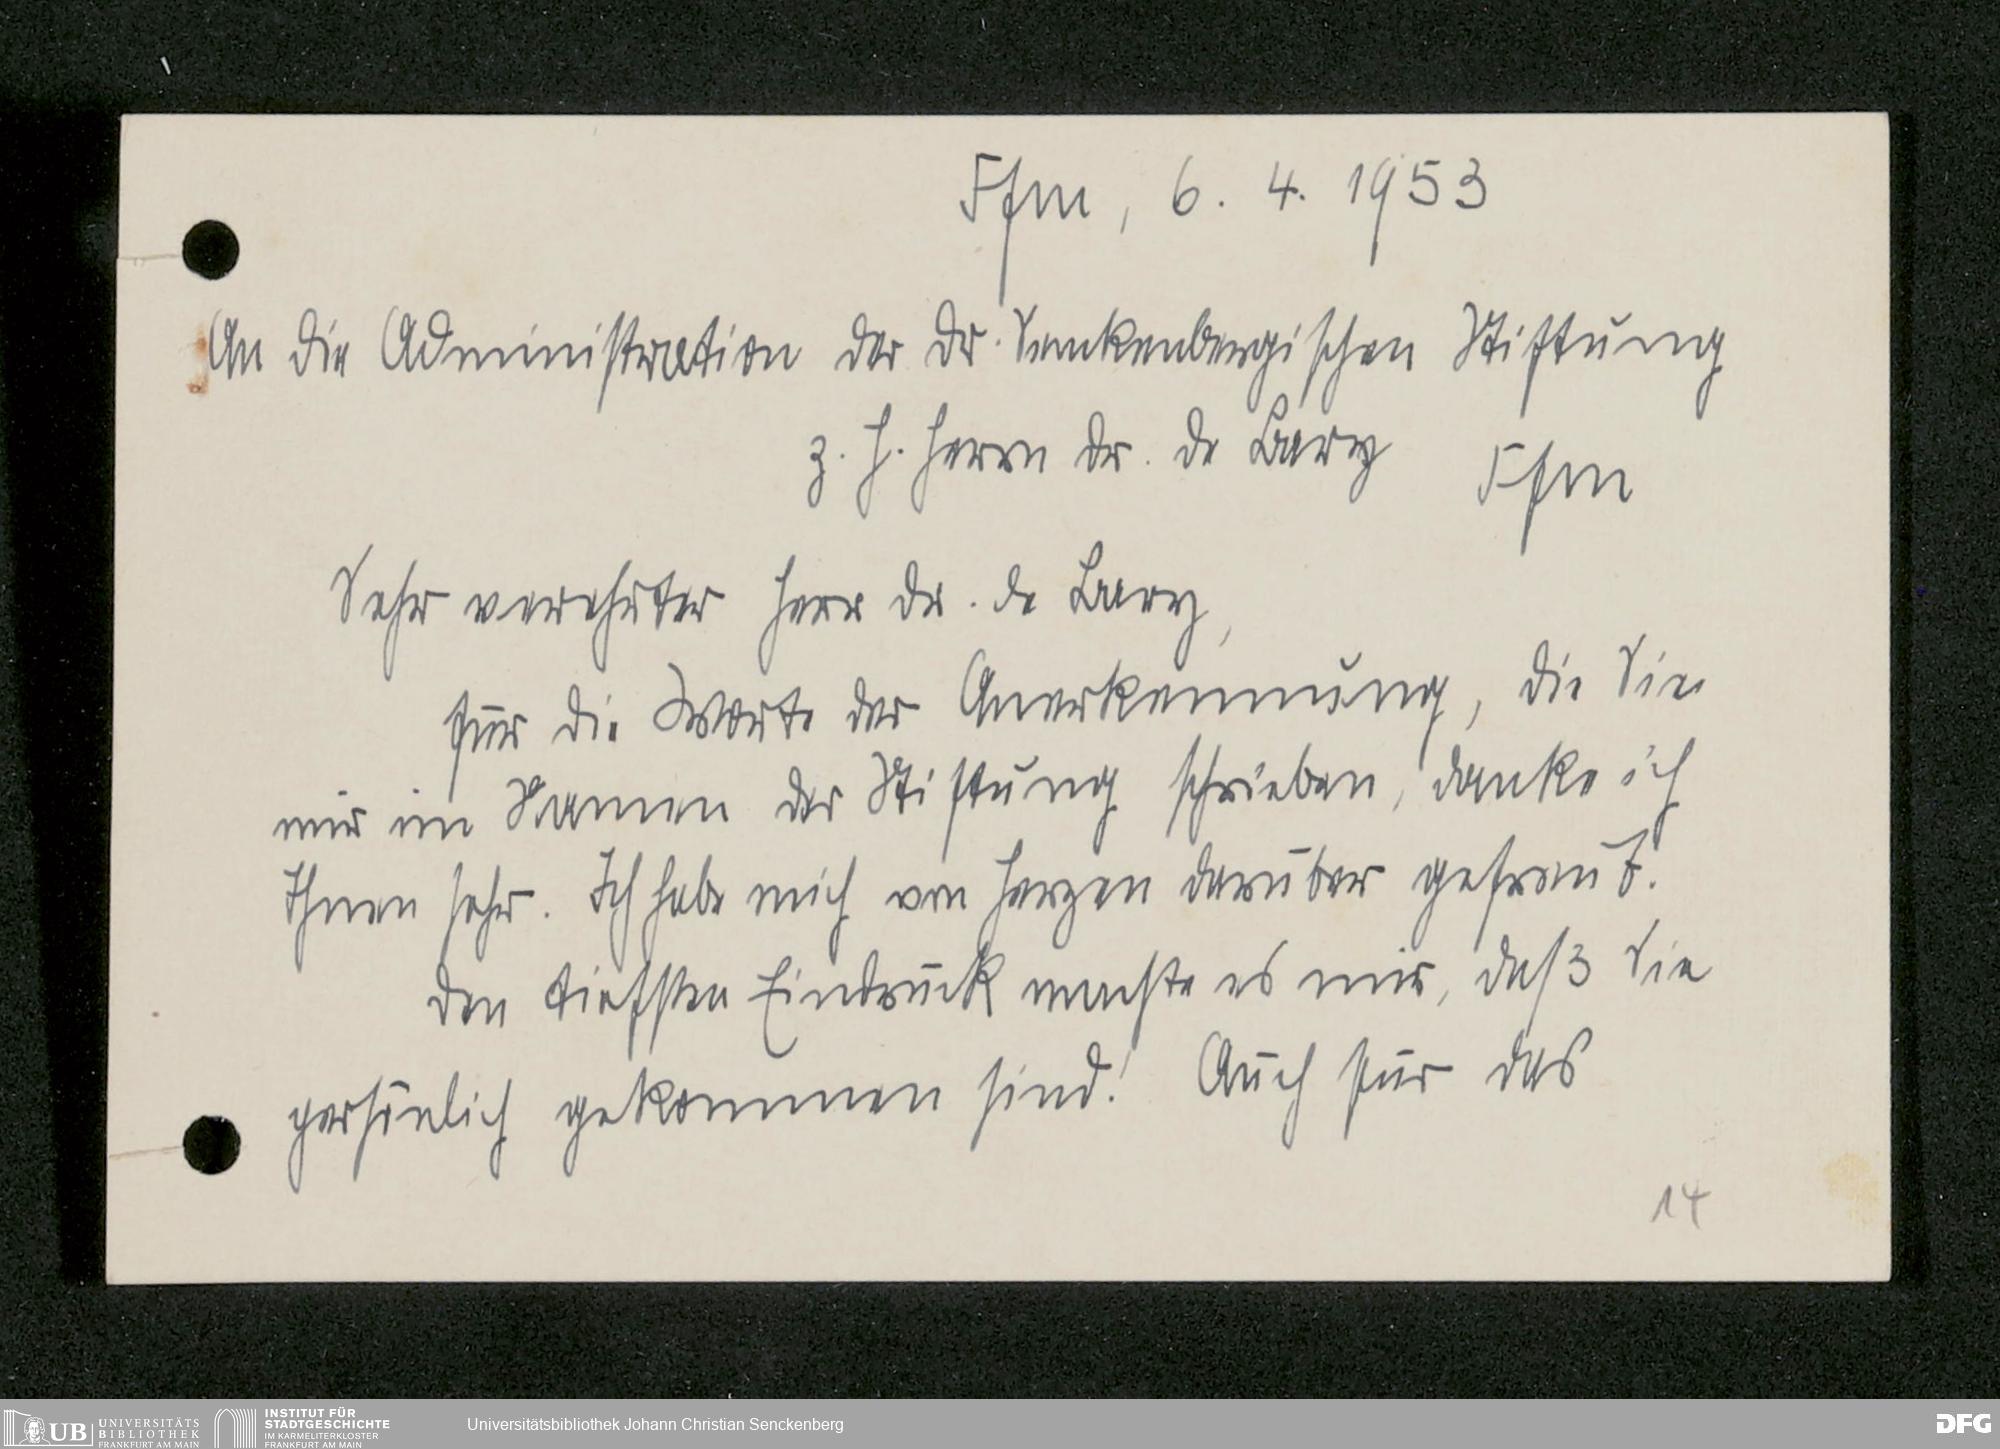 Ffm, 6. 4. 1953
An die Administration der Dr. Senkenbergischen Stiftung
z. H. Herrn Dr. de Bary Ffm
Sehr verehrter Herr Dr. de Bary,
für die Worte der Anerkennung, die Sie
mir im Namen der Stiftung schrieben, danke ich
Ihnen sehr. Ich habe mich von Herzen darüber gefreut.
Den tiefsten Eindruck machte es mir, daß Sie
persönlich gekommen sind! Auch für das
14
UB UNIVERSITÄTS BIBLIOTHEK FRANKFURT AM MAIN
INSTITUT FÜR STADTGESCHICHTE IM KARMELITERKLOSTER FRANKFURT AM MAIN
Universitätsbibliothek Johann Christian Senckenberg
DFG